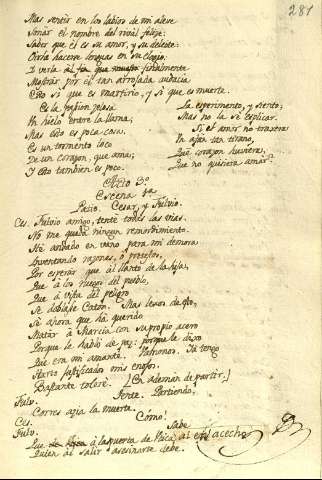 281
Mas sentir en los labios de mi aleve
Sonar el nombre del rival felize:
Saber que el es su amor, y su deleite:
Oirla hacerse lenguas en su elogio:
I verla finalmente
Mostrar por el tan arrojada audacia
Esto si que es martirio, y si que es muerte.
Es la pasion zelosa
Un hielo entre la llama;
Mas esto es poca cosa.
Es un tormento loco
De un corazon, que ama;
I esto tambien es poco.
La esperimento, y siento;
Mas no la sè esplicar.
Si el amor no traxera
Un afan tan tirano,
Què corazon huviera,
Que no quisiera amar?
Acto 3º
Escena 1ª
Patio. Cesar, y Fulvio.
Ces. Fulvio amigo, tentè todas las vias.
No me queda ningun remordimiento.
Hè andado en vano para mi demora
Inventando razones, ò pretestos,
Por esperar que al llanto de la hija,
Que à los ruegos del pueblo,
Que à vista del peligro
Se doblase Caton. Mas lexos de esto,
Sè ahora que hà querido
Matar à Marcia con su propio acero
Porque le hablò de paz: porque le dixo
Que era mi amante. Vamonos. Yà tengo
Harto justificados mis enojos.
Bastante tolerè. [En ademàn de partir.]
Fulv. Tente. Partiendo,
Corres àzia la muerte.
Ces. Como!
Fulv. Sabe
Que à la puerta de Utica, al està acecho
Quien al salir asesinarte debe.